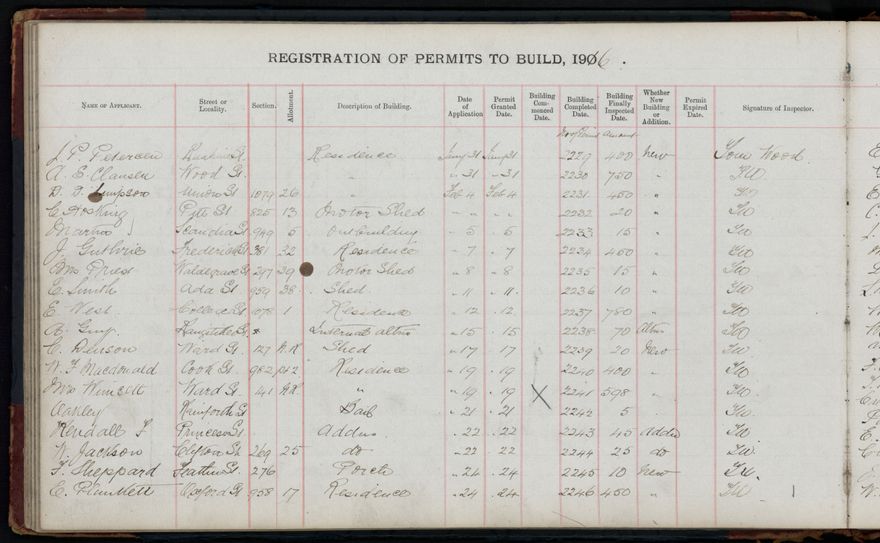 REGISTRATION OF PERMITS TO BUILD, 1906.
NAME OF APPLICANT. Street or Locality. Section. Allotment. Description of Building. Date of Application Permit Granted Date. Building Commenced Date. Building Completed Date. Building Finally Inspected Date. Whether New Building or Addition. Permit Expired Date. Signature of Inspector.
No of Permit Amount
J. P. Petersen St. Residence Jany 31 Jany 31 2229 400 New Tom Wood
A. E. Clausen Wood St. " " 31 " 31 2230 750 " TW
D. D. Simpson Union St 1079 26 " Feb 4 Feb 4 2231 450 " TW
C. Hosking Pitt St 825 13 Motor Shed " " " " 2232 20 " TW
Scandia St 949 5 Outbuilding " 5 " 5 2233 15 " TW
J. Guthrie Frederick St 381 32 Residence " 7 " 7 2234 450 " TW
Press Waldegrave St 297 39 Motor Shed " 8 " 8 2235 15 " TW
E. Smith Ada St 959 38 Shed " 11 " 11 2236 10 " TW
E. West College St 1078 1 Residence " 12 " 12 2237 780 " TW
A. Guy Internal altns " 15 " 15 2238 70 Altns TW
C. Benson Ward St. 127 Shed " 17 " 17 2239 20 New TW
W. F. Macdonald Cook St 982 Residence " 19 " 19 2240 400 " TW
Mrs Ward St. 41 " " 19 " 19 X 2241 598 " TW
Oakley Rainforth St Bail " 21 " 21 2242 5 " TW
Kendall F Princess St Addns " 22 " 22 2243 45 Addn TW
W. Jackson Clifton St. 269 25 do " 22 " 22 2244 25 do TW
F. Sheppard St. 276 Porch " 24 " 24 2245 10 New TW
C. Plunkett Oxford St 958 17 Residence " 24 " 24 2246 450 " TW